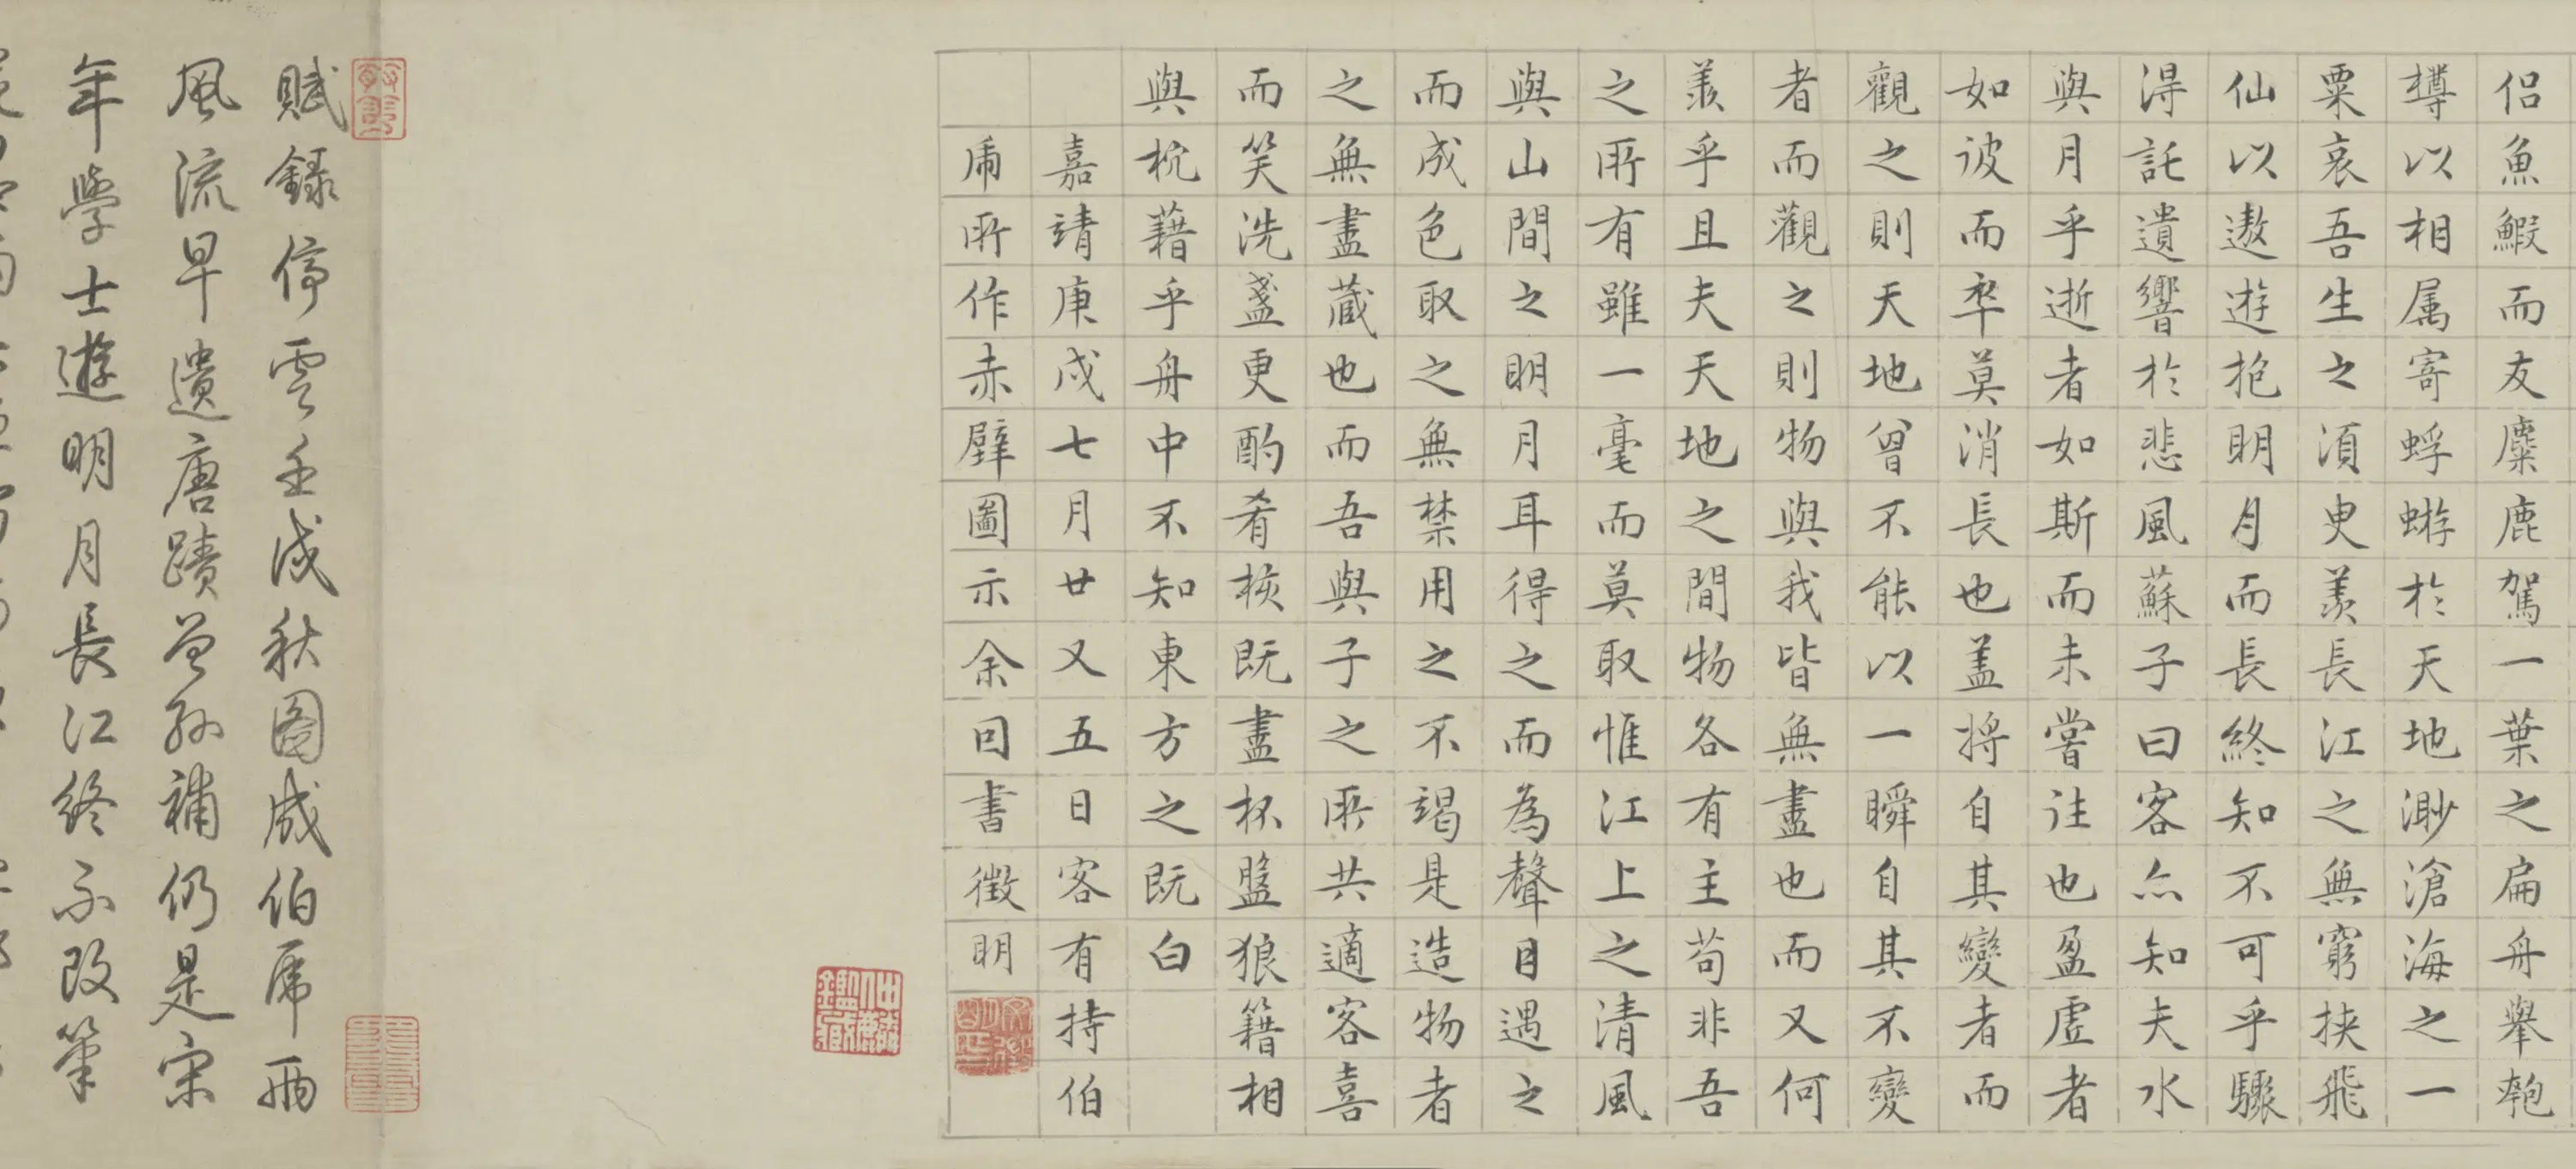 侣魚鰕而友麋鹿駕一葉之扁舟舉匏
樽以相属寄蜉蝣於天地渺滄海之一
粟哀吾生之湏臾羡長江之無窮挟飛
仙以遨遊抱明月而長終知不可乎驟
淂託遺響於悲風蘇子曰客亦知夫水
與月乎逝者如斯而未嘗往也盈虚者
如彼而卒莫消長也盖将自其變者而
觀之則天地曾不能以一瞬自其不變
者而觀之則物與我皆無盡也而又何
羨乎且夫天地之間物各有主苟非吾
之所有雖一毫而莫取惟江上之清風
與山間之明月耳得之而為聲目遇之
而成色取之無禁用之不竭是造物者
之無盡蔵也而吾與子之所共適客喜
而笑洗盞更酌肴核既盡杯盤狼籍相
與枕藉乎舟中不知東方之既白
嘉靖庚戌七月廿又五日客有持伯
虎所作赤壁圖示余因書徵明
賦録停雲壬戌秋圖成伯虎兩
風流早遺唐蹟曾孫補仍是宋
年學士遊明月長江終不改筆